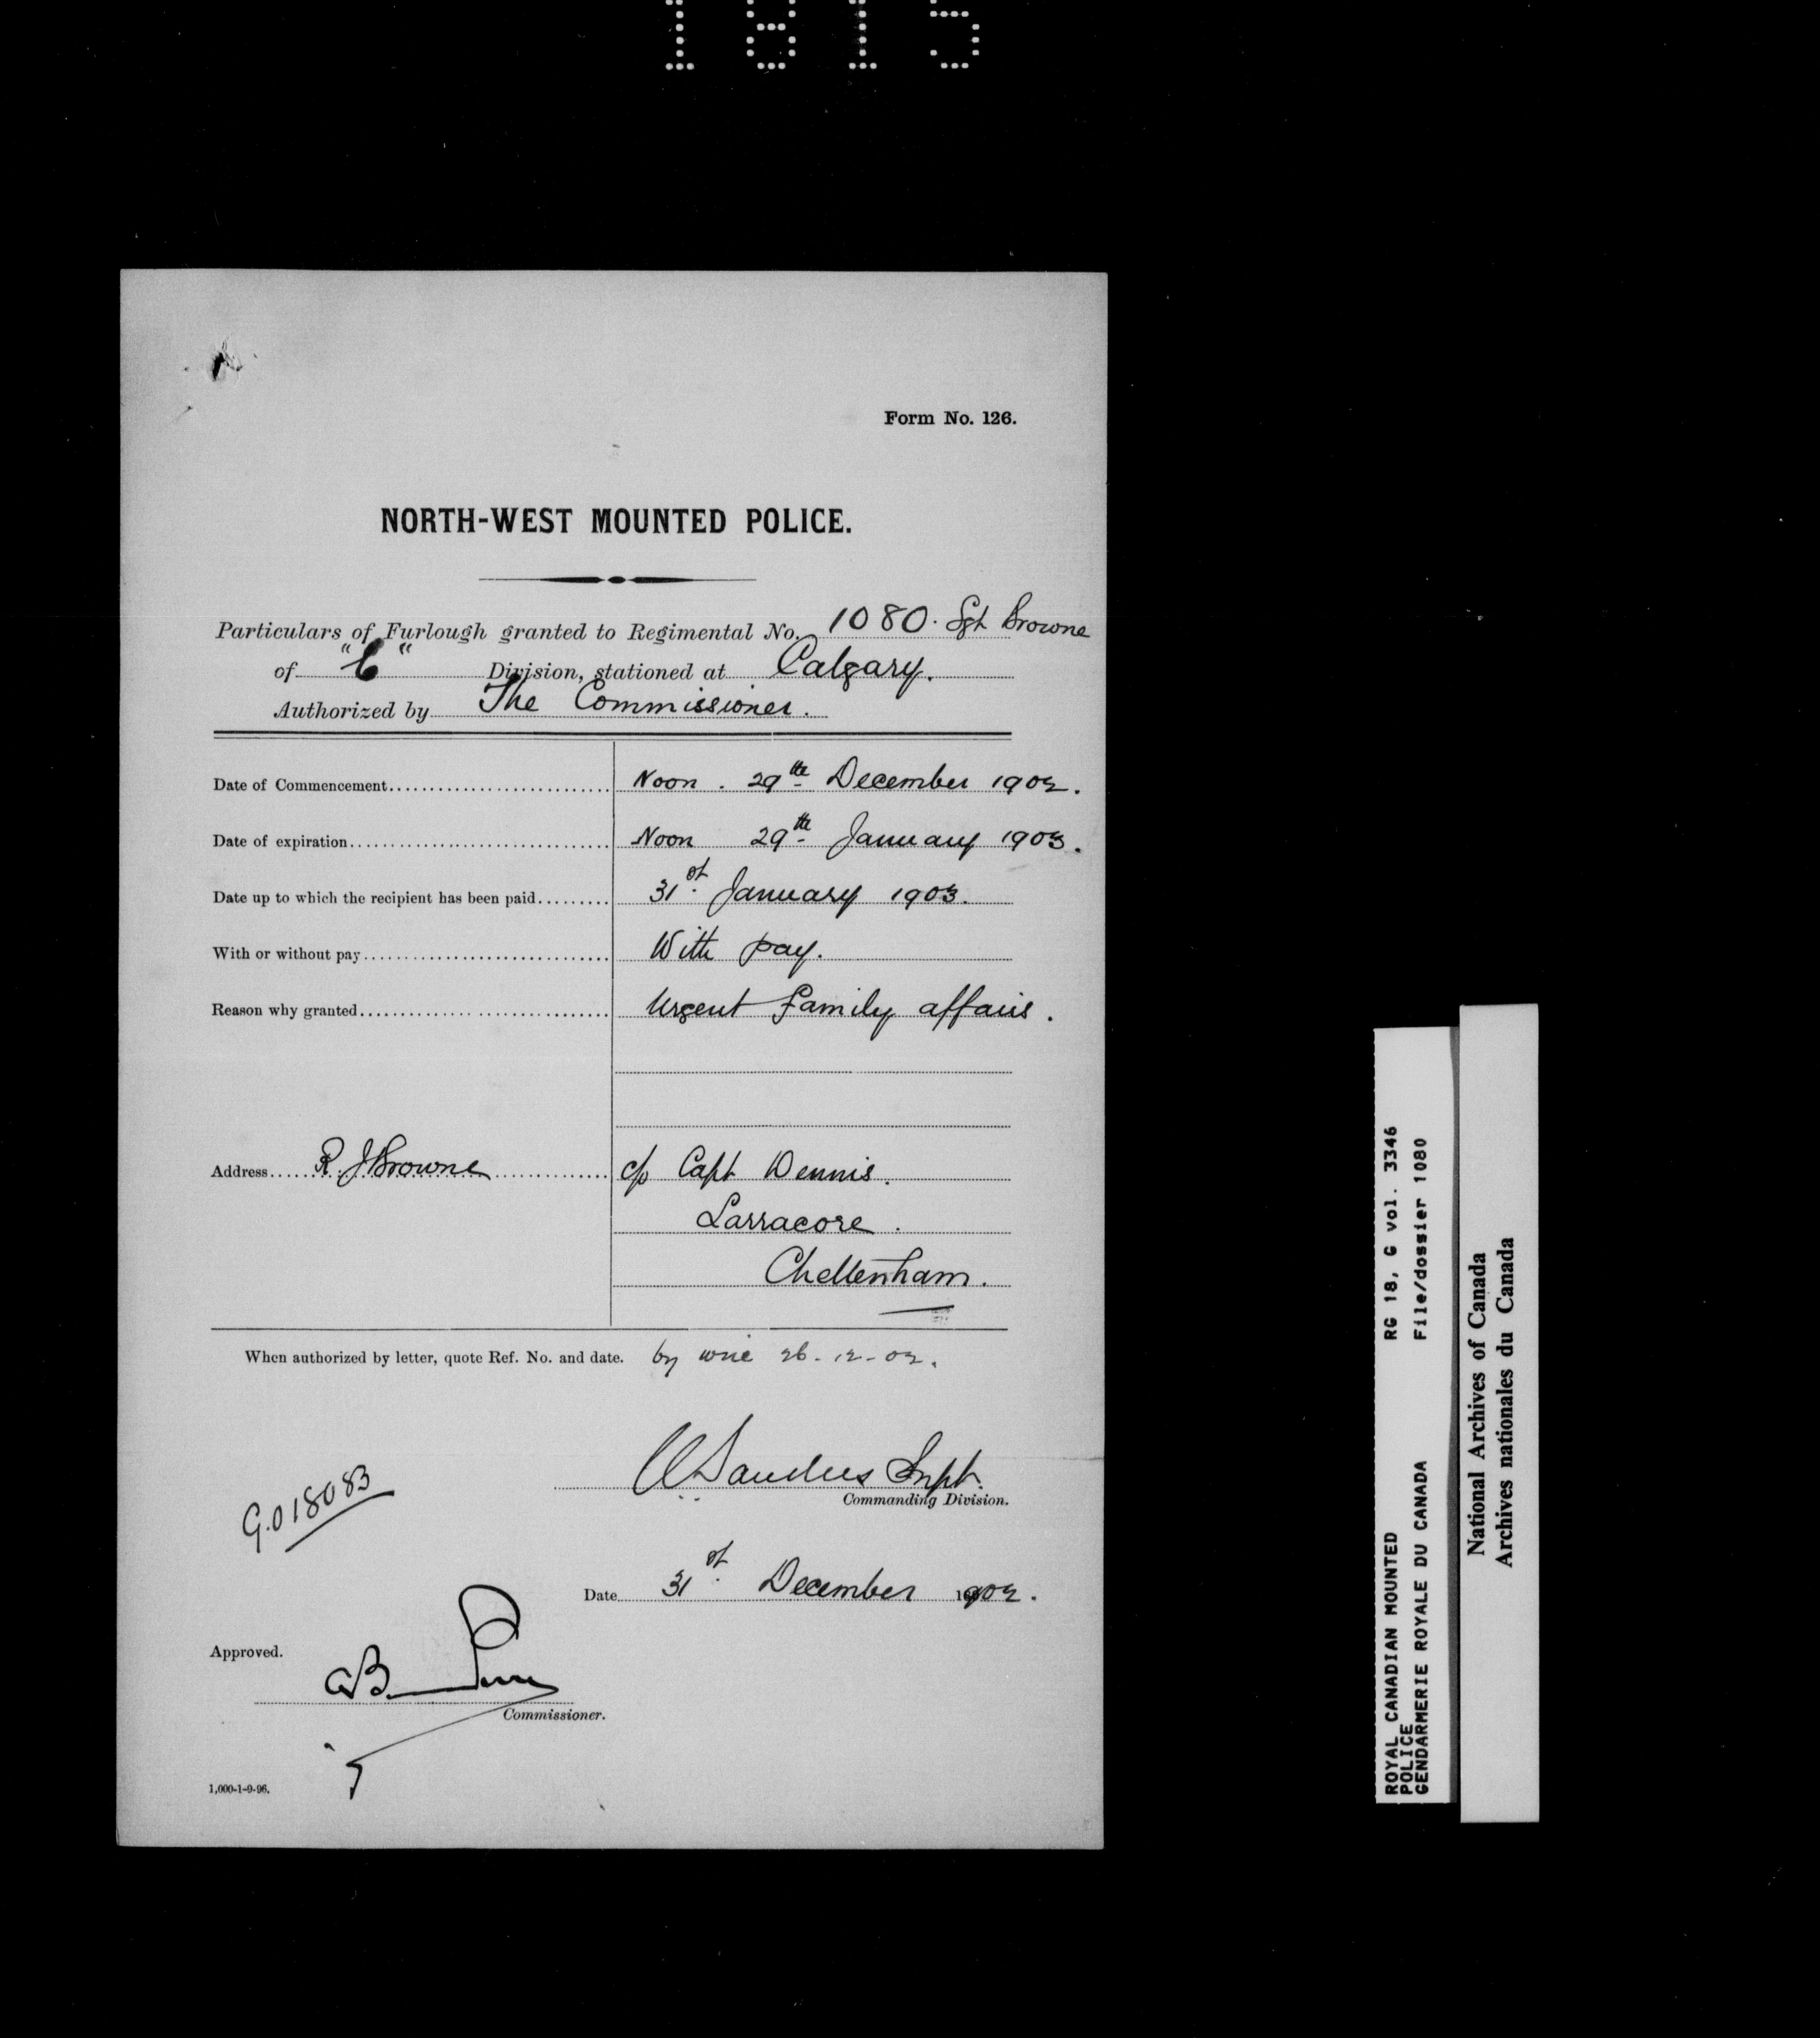 1815
Form No. 126.
NORTH-WEST MOUNTED POLICE.
Particulars of Furlough granted to Regimental No. 1080. Sgt Browne
of Division, stationed at Calgary.
Authorized by The Commissioner.
Date of Commencement Noon. 29th December 1902.
Date of expiration Noon 29th January 1903.
Date up to which the recipient has been paid 31st January 1903.
With or without pay With pay.
Reason why granted Urgent Family affairs.
Address R. J Browne c/o Capt Dennis.
Larracore.
Cheltenham.
When authorized by letter, quote Ref. No. and date. by wire 26-12-02.
Sanders Supt.
Commanding Division.
G.O 18083
Date 31st December 1902.
Approved.
Commissioner.
1,000-1-9-96.
ROYAL CANADIAN MOUNTED RG 18, G vol. 3346
POLICE
GENDARMERIE ROYALE DU CANADA File/dossier 1080
National Archives of Canada
Archives nationales du Canada